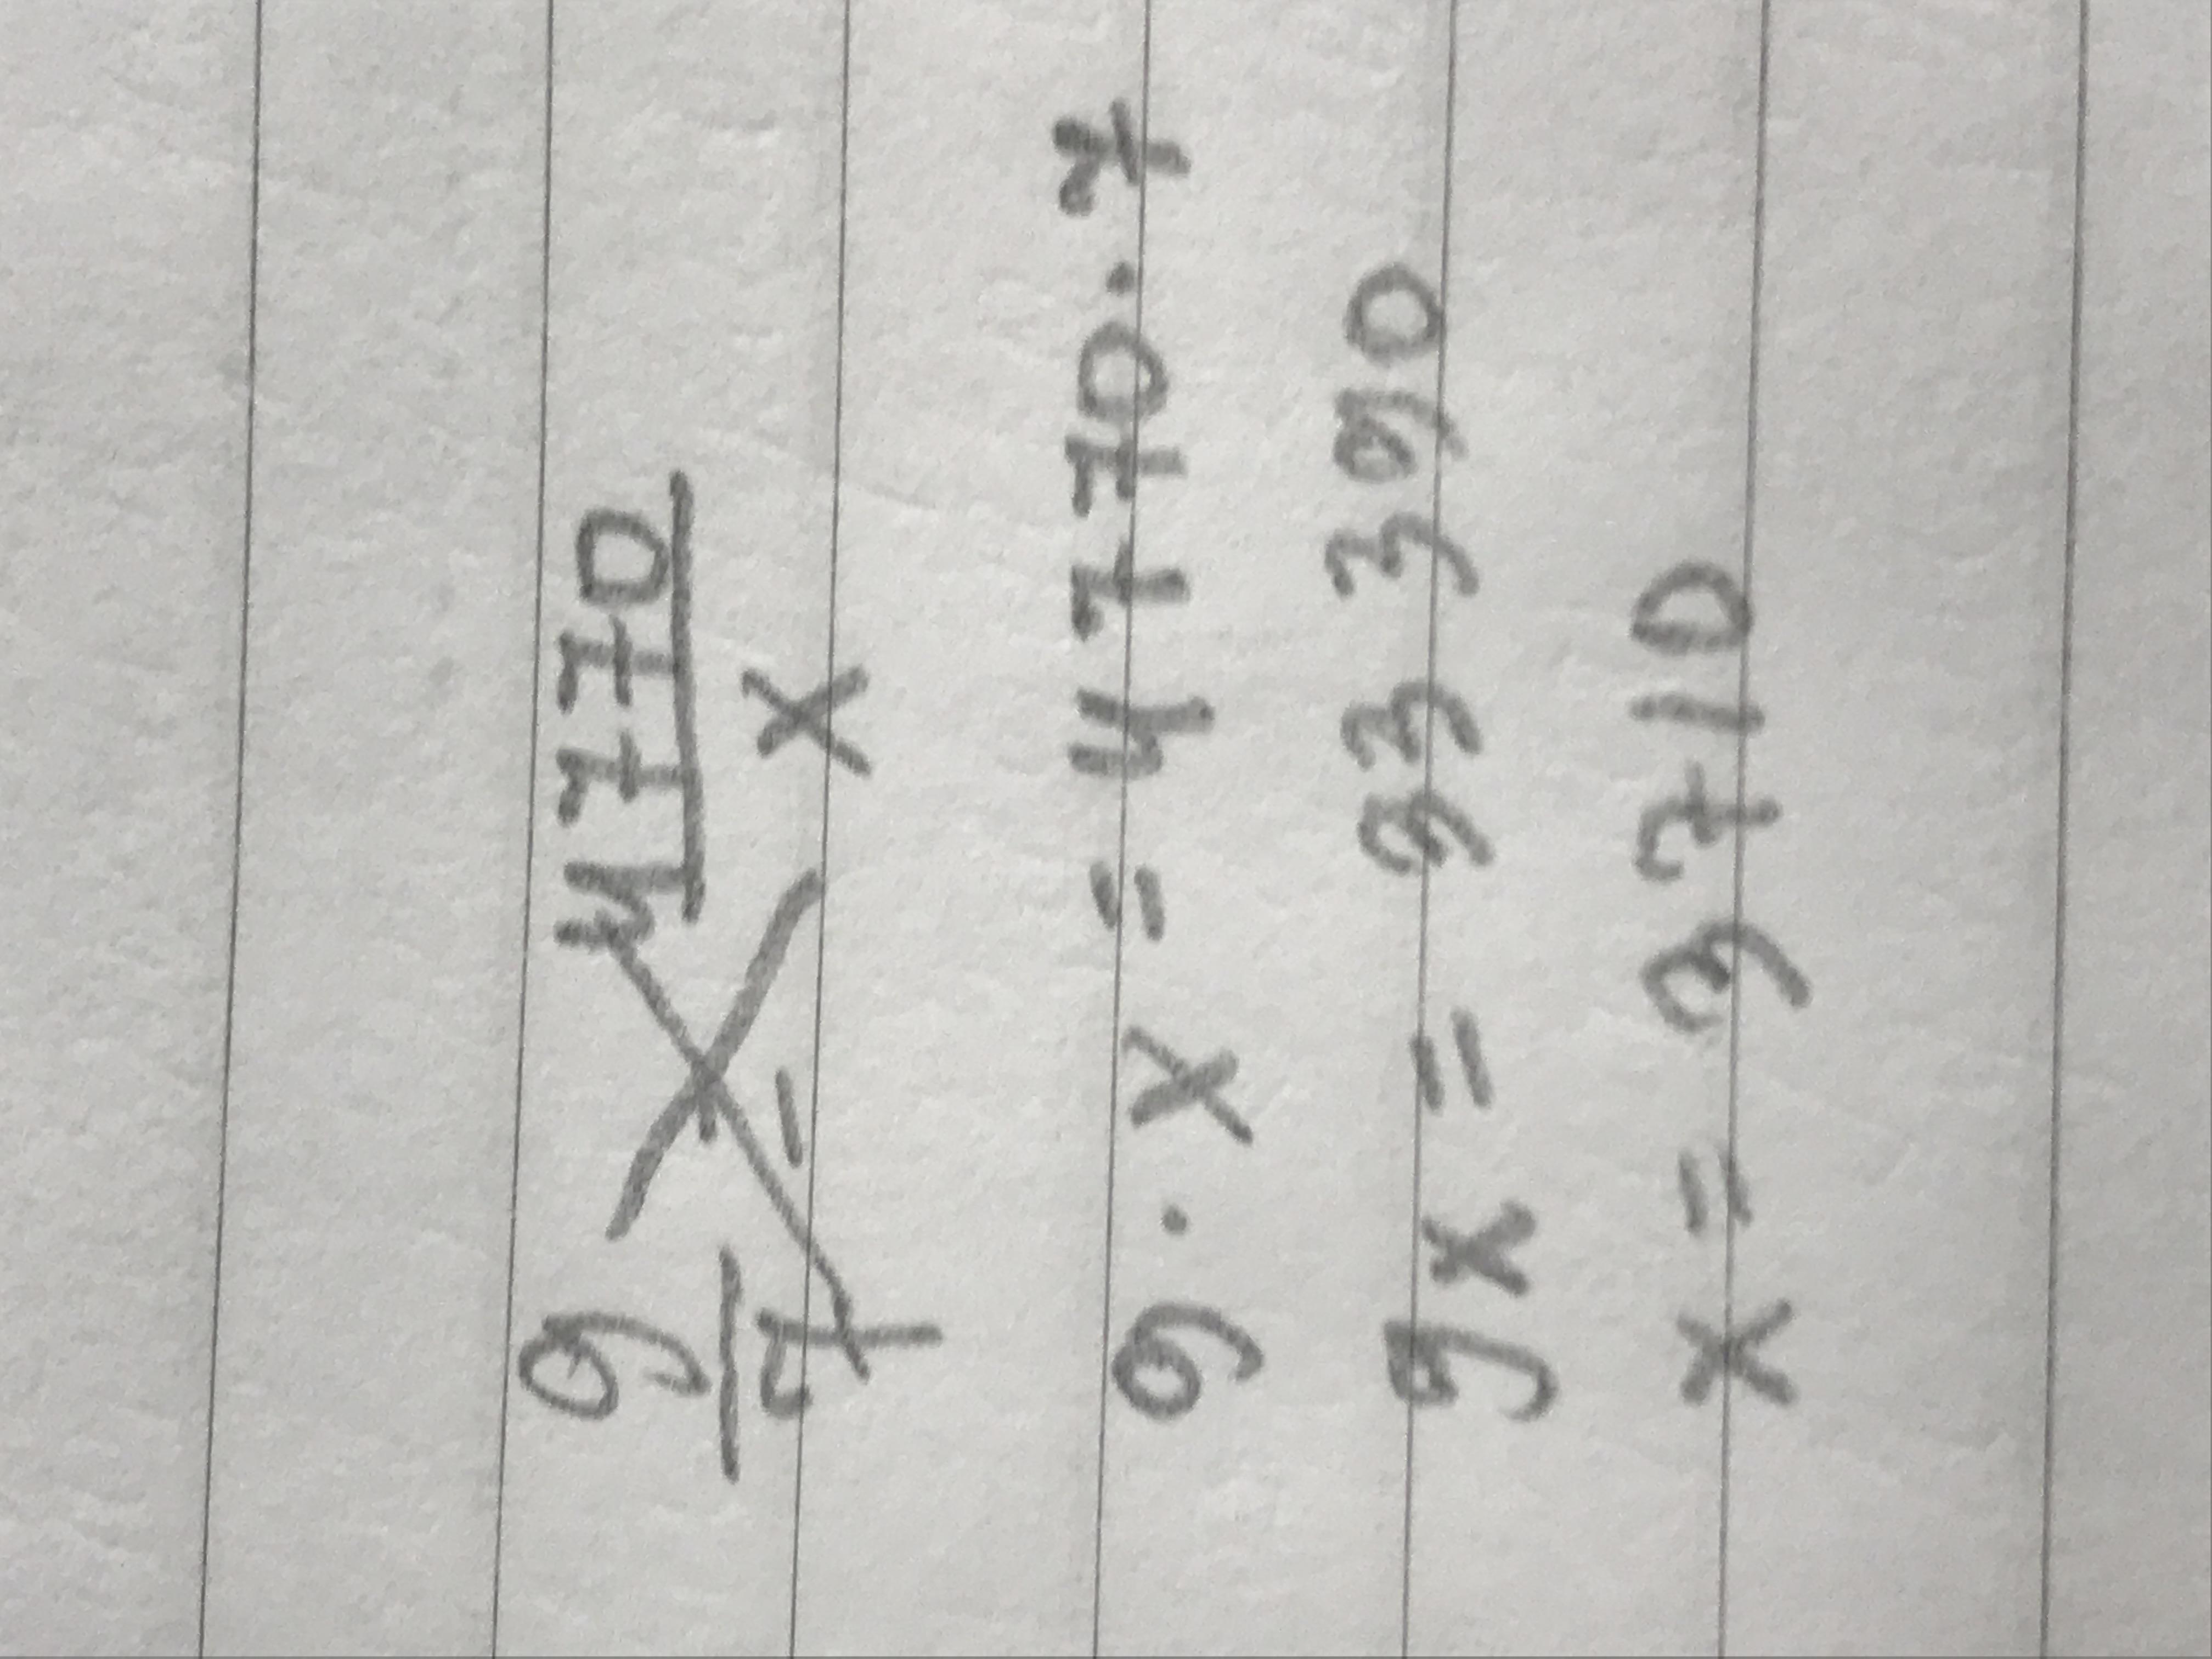 9/7 = 4770/x
9 · x = 4770 · 7
9x = 33390
x = 3710